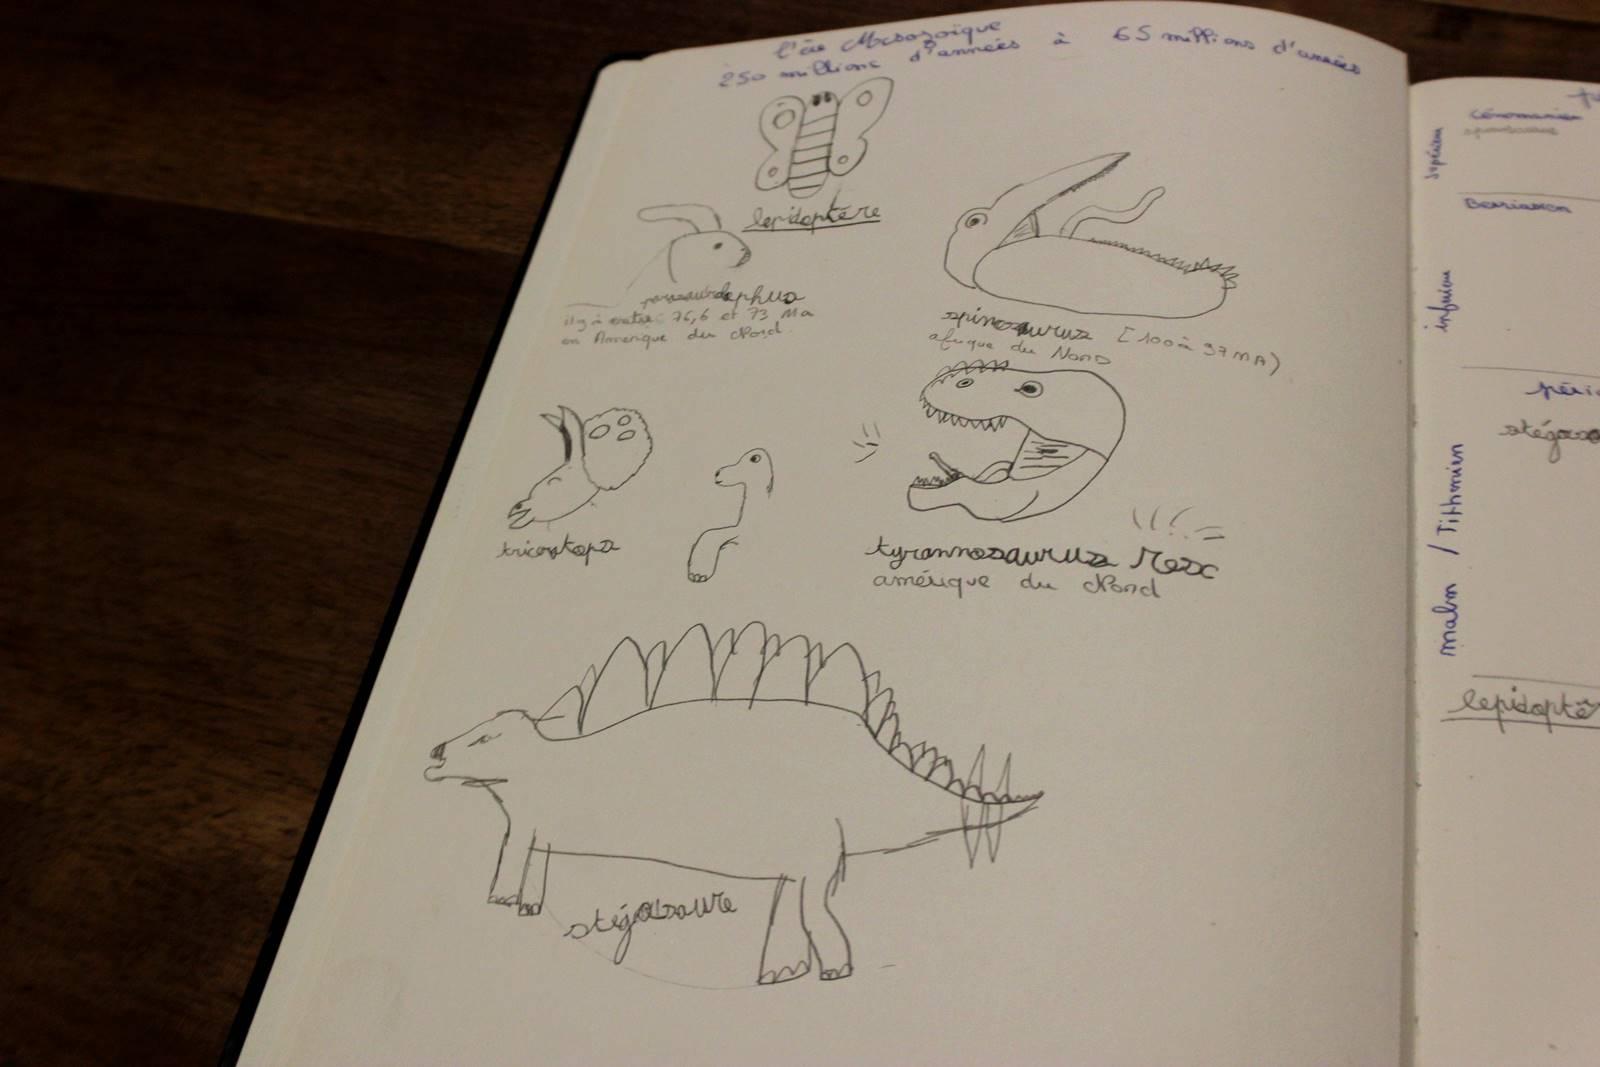 l'ère Mésozoïque
250 millions d'années à 65 millions d'années
lepidoptère
parasaurolophus
il y a entre 76,6 et 73 Ma
en Amerique du Nord
spinosaurus [100 à 97 MA)
afrique du Nord
tricératops
tyrannosaurus Rex
amérique du Nord
stégosaure
supérieur
Cénomanien
spinosaurus
Berriasien
inférieur
pério
stégosa
malm / Tithonien
lepidoptè